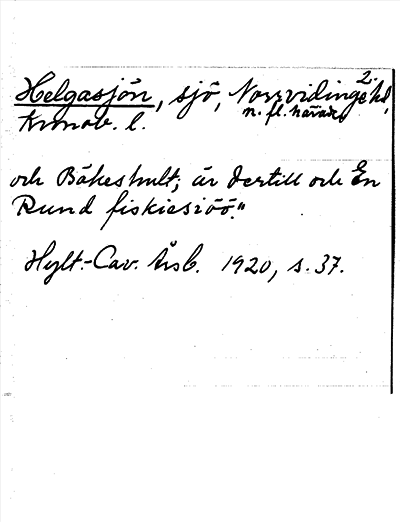 2.
Helgasjön, sjö, Norrvidinge hd,
n. fl. härader
Kronob. l.
och Båkeshult; är dertill och En
Rund fiskiesiöö."
Hylt.-Cav. Årsb. 1920, s. 37.